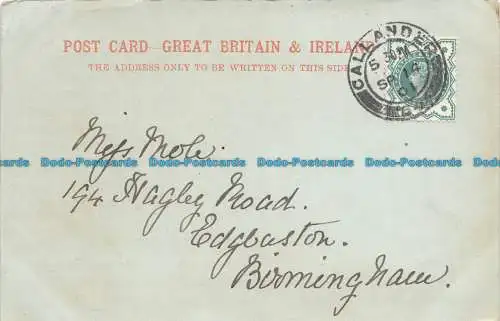 POST CARD - GREAT BRITAIN & IRELAND
THE ADDRESS ONLY TO BE WRITTEN ON THIS SIDE
CALLANDER
Miss Mole.
194 Hagley Road.
Edgbaston.
Birmingham.
Dodo-Postcards Dodo-Postcards Dodo-Postcards Dodo-Postcards Dodo-Postcards